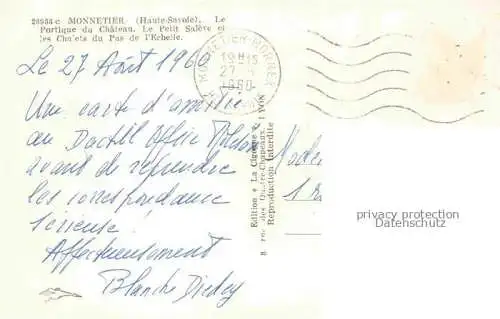 26988 c MONNETIER (Haute-Savoie). Le
Portique du Château. Le Petit Salève et
les Chalets du Pas de l'Echelle.
Le 27 Août 1960
Une carte d'amitié
au Dactil Office
avant de reprendre
les correspondance
sérieuse.
Affectueusement
Blanche
MONNETIER-MORNEX
1960
Edition « La Cigogne »
8, rue des Quatre-Chapeaux, LYON
Reproduction Interdite
privacy protection
Datenschutz